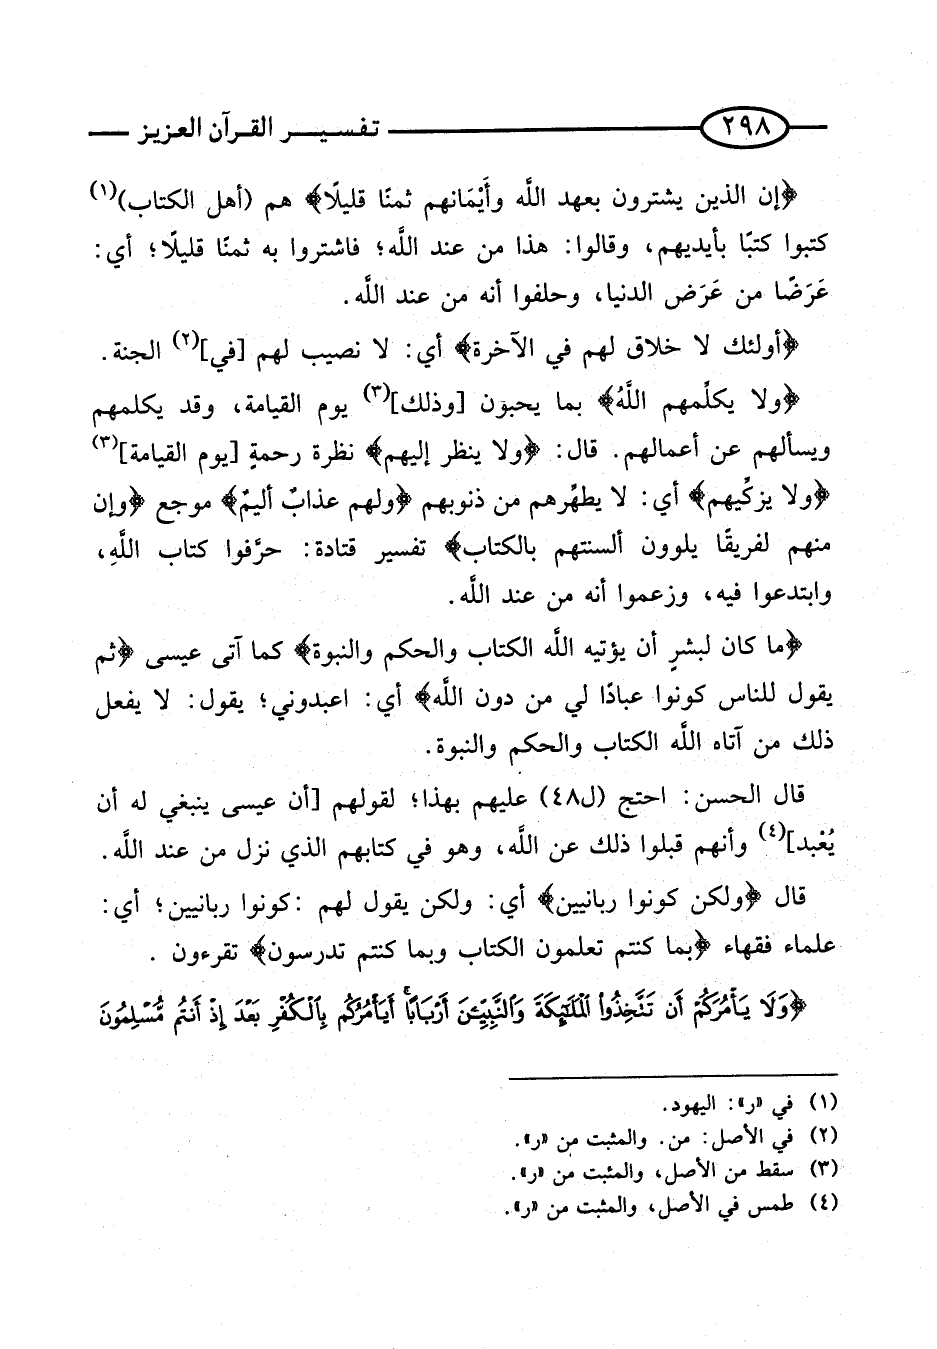 ٢٩٨ تفسير القرآن العزيز
﴿إن الذين يشترون بعهد اللَّه وأَيْمَانهم ثمنًا قليلًا﴾ هم (أهل الكتاب)(١)
كتبوا كتبًا بأيديهم، وقالوا: هذا من عند اللَّه؛ فاشتروا به ثمنًا قليلًا؛ أي:
عَرَضًا من عَرَض الدنيا، وحلفوا أنه من عند اللَّه.
﴿أولئك لا خلاق لهم في الآخرة﴾ أي: لا نصيب لهم [في](٢) الجنة.
﴿ولا يكلِّمهم اللَّهُ﴾ بما يحبون [وذلك](٣) يوم القيامة، وقد يكلمهم
ويسألهم عن أعمالهم. قال: ﴿ولا ينظر إليهم﴾ نظرة رحمةٍ [يوم القيامة](٣)
﴿ولا يزكِّيهم﴾ أي: لا يطهِّرهم من ذنوبهم ﴿ولهم عذابٌ أليمٌ﴾ موجع ﴿وإن
منهم لفريقًا يلوون ألسنتهم بالكتاب﴾ تفسير قتادة: حرَّفوا كتاب اللَّهِ،
وابتدعوا فيه، وزعموا أنه من عند اللَّه.
﴿ما كان لبشرٍ أن يؤتيه اللَّه الكتاب والحكم والنبوة﴾ كما آتى عيسى ﴿ثم
يقول للناس كونوا عبادًا لي من دون اللَّه﴾ أي: اعبدوني؛ يقول: لا يفعل
ذلك من آتاه اللَّه الكتاب والحكم والنبوة.
قال الحسن: احتج (ل٤٨) عليهم بهذا؛ لقولهم [أن عيسى ينبغي له أن
يُعْبد](٤) وأنهم قبلوا ذلك عن اللَّه، وهو في كتابهم الذي نزل من عند اللَّه.
قال ﴿ولكن كونوا ربانيين﴾ أي: ولكن يقول لهم :كونوا ربانيين؛ أي:
علماء فقهاء ﴿بما كنتم تعلمون الكتاب وبما كنتم تدرسون﴾ تقرءون .
﴿وَلَا يَأْمُرَكُمْ أَن تَتَّخِذُوا۟ الْمَلَٰٓئِكَةَ وَالنَّبِيِّـۧنَ أَرْبَابًا ۗ أَيَأْمُرُكُم بِالْكُفْرِ بَعْدَ إِذْ أَنتُم مُّسْلِمُونَ
(١) في «ر»: اليهود.
(٢) في الأصل: من. والمثبت من «ر».
(٣) سقط من الأصل، والمثبت من «ر».
(٤) طمس في الأصل، والمثبت من «ر».